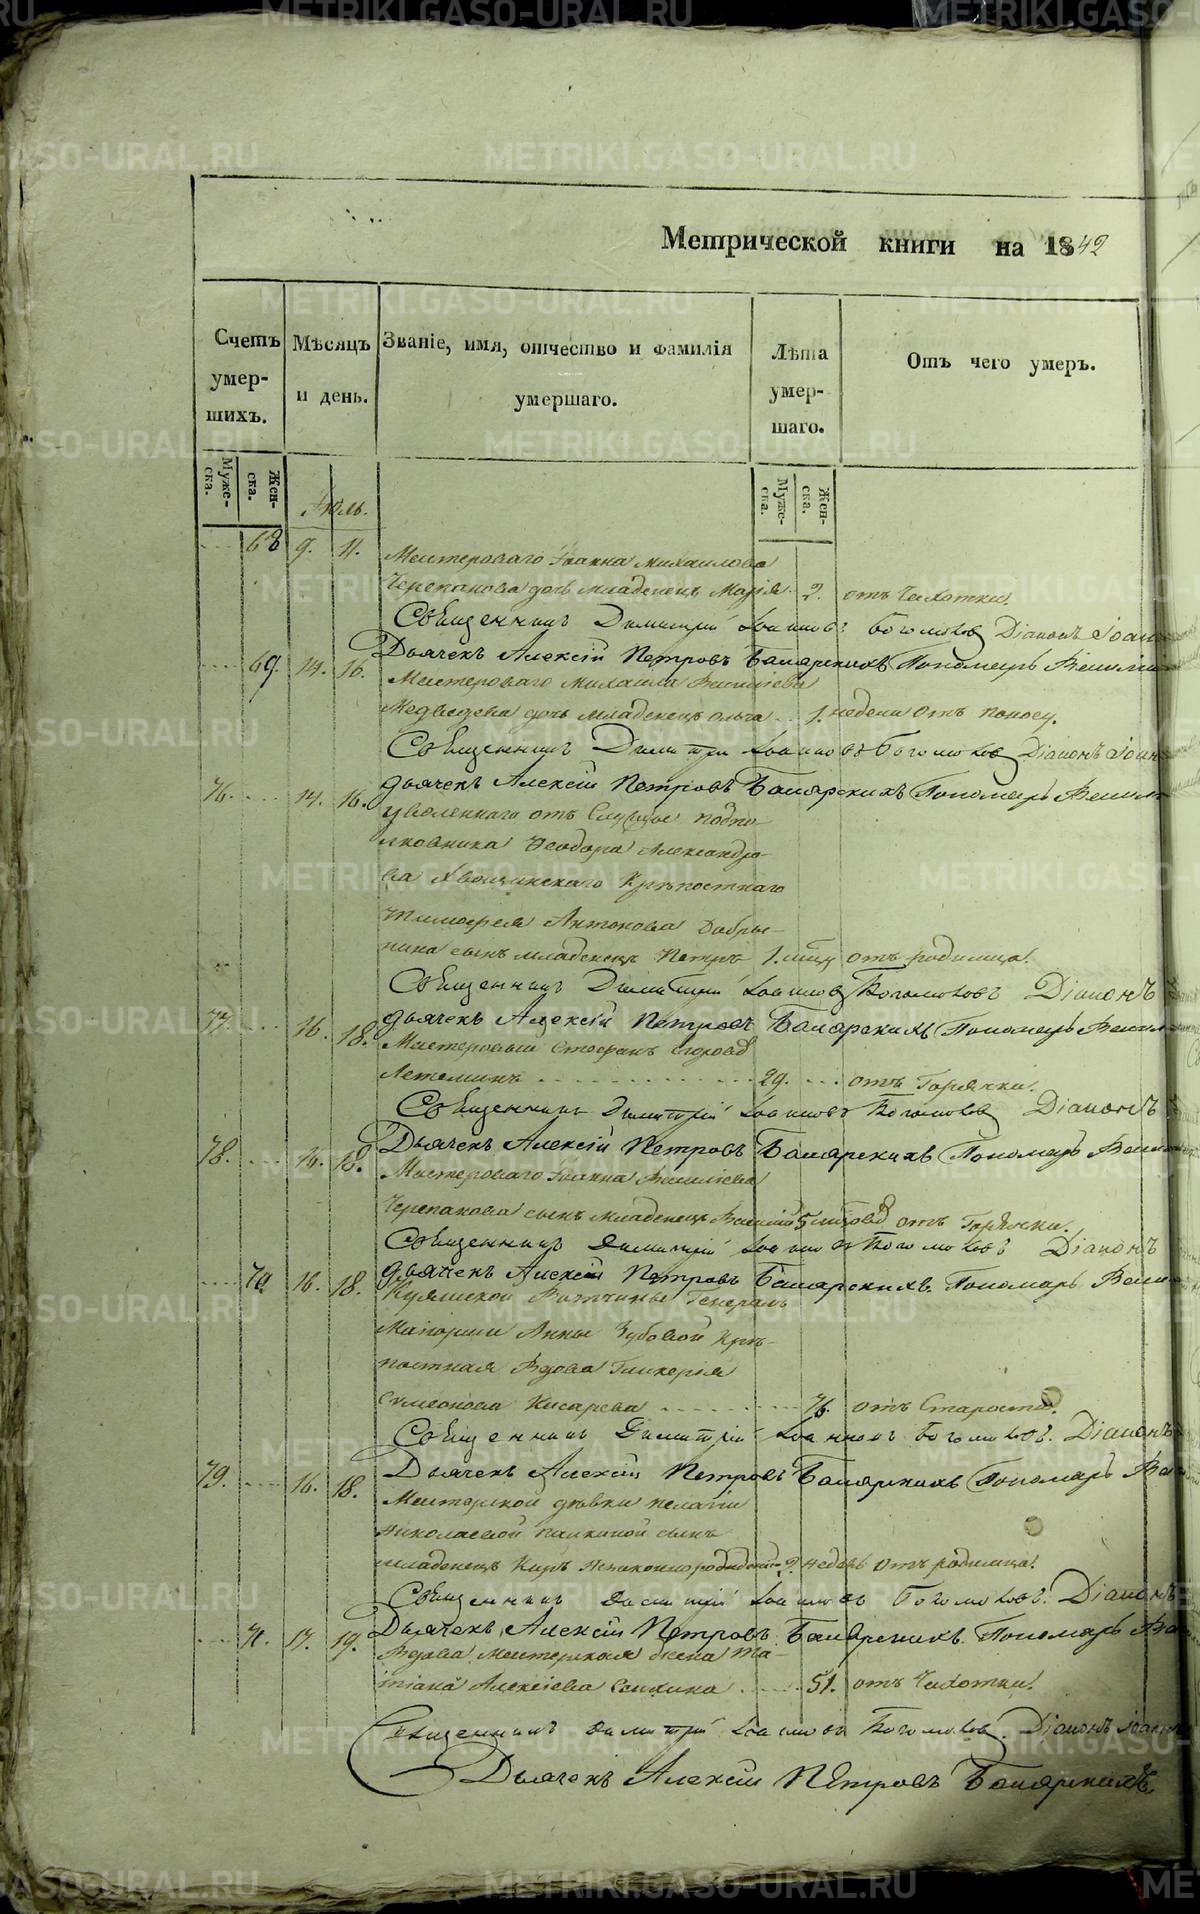 Метрической книги на 1842
Счетъ умер- шихъ.
Мѣсяцъ и день.
Званіе, имя, отчество и фамилія умершаго.
Лѣта умер- шаго.
Отъ чего умеръ.
Муже- ска.
Жен- ска.
Муже- ска.
Жен- ска.
Іюль.
68 9. 11. Мастероваго Іоанна Михаилова
Черепанова дочь младенецъ Марія 2. отъ Чахотки.
Священникъ Димитрій Іоанновъ Богомоловъ Діаконъ Іоан
Дьячекъ Алексій Петровъ Баиярскихъ Пономарь
69. 14. 16. Мастероваго Михаила Василіева
Медведева дочь младенецъ Ольга 1. недели отъ поносу.
Священникъ Димитрій Іоанновъ Богомоловъ Діаконъ Іоан
76. 14. 16. дьячекъ Алексій Петровъ Баиярскихъ Пономарь
уволеннаго отъ Службы подпо-
лковника Ѳеодора Александро-
ва Хвощинскаго Крѣпостнаго
Тимофея Антонова Добры-
нина сынъ младенецъ Петръ 1. мцъ отъ родимца.
Священникъ Димитрій Іоанновъ Богомоловъ Діаконъ
77. 16. 18. дьячекъ Алексій Петровъ Баиярскихъ Пономарь
Мастеровый Стефанъ Егоровъ
Летеминъ 29. отъ Горячки.
Священникъ Димитрій Іоанновъ Богомоловъ Діаконъ
78. 16. 18. Дьячекъ Алексій Петровъ Баиярскихъ Пономарь
Мастероваго Іоанна Василіева
Черепанова сынъ младенецъ Василій 5 отъ Горячки.
Священникъ Димитрій Іоанновъ Богомоловъ Діаконъ
70 16. 18. дьячекъ Алексій Петровъ Баиярскихъ Пономарь
Куяшской Вотчины Генералъ
Маіорши Анны Зубовой Крѣ-
постная Вдова Гликерія
Симеонова Кисарева 76. отъ Старости.
Священникъ Димитрій Іоанновъ Богомоловъ. Діаконъ
79. 16. 18. Дьячекъ Алексій Петровъ Баиярскихъ Пономарь
Мастерской дѣвки Пелагіи
Николаевой сынъ
младенецъ Киръ незаконнорожденный 2. недель отъ родимца.
Священникъ Димитрій Іоанновъ Богомоловъ. Діаконъ
71. 17. 19. Дьячекъ Алексій Петровъ Баиярскихъ Пономарь
Вдова Мастерская жена Та-
тіана Алексіева 51. отъ Чахотки.
Священникъ Димитрій Іоанновъ Богомоловъ Діаконъ
Дьячекъ Алексій Петровъ Баиярскихъ.
METRIKI.GASO-URAL.RU